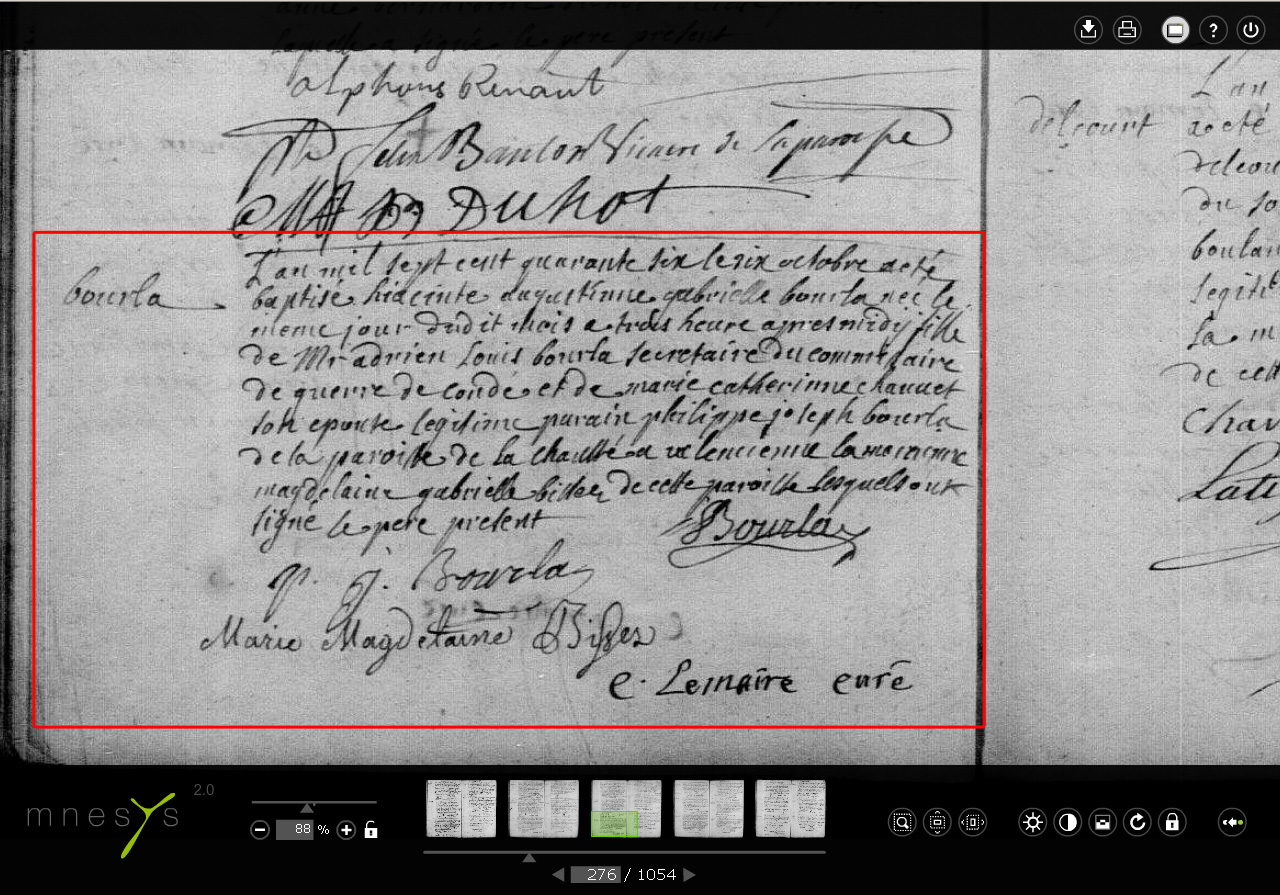 laquelle a signé le pere present
alphons Renaut
felix Banlor Vicaire de
Duhot
bourla
L'an mil sept cent quarante six le six octobre a eté
baptisé hiacinte augustinne gabrielle bourla neé le
meme jour dudit mois a trois heure apres midij fille
de Mr adrien Louis bourla secretaire du commissaire
de guerre de condé et de marie catherinne chauuet
son epouse legitime parain philippe joseph bourla
de la paroisse de la chaussé a valencienne la maraine
magdelaine gabrielle bisses de cette paroisse lesquels ont
signé le pere present
Bourla
p. j. Bourla
Marie Magdelaine Bisses
C. Lemaire curé
delcourt
L'an
a eté
delcou
du so
boulan
legiti
la m
de cett
Chav
mnesys 2.0
88 %
276 / 1054
?